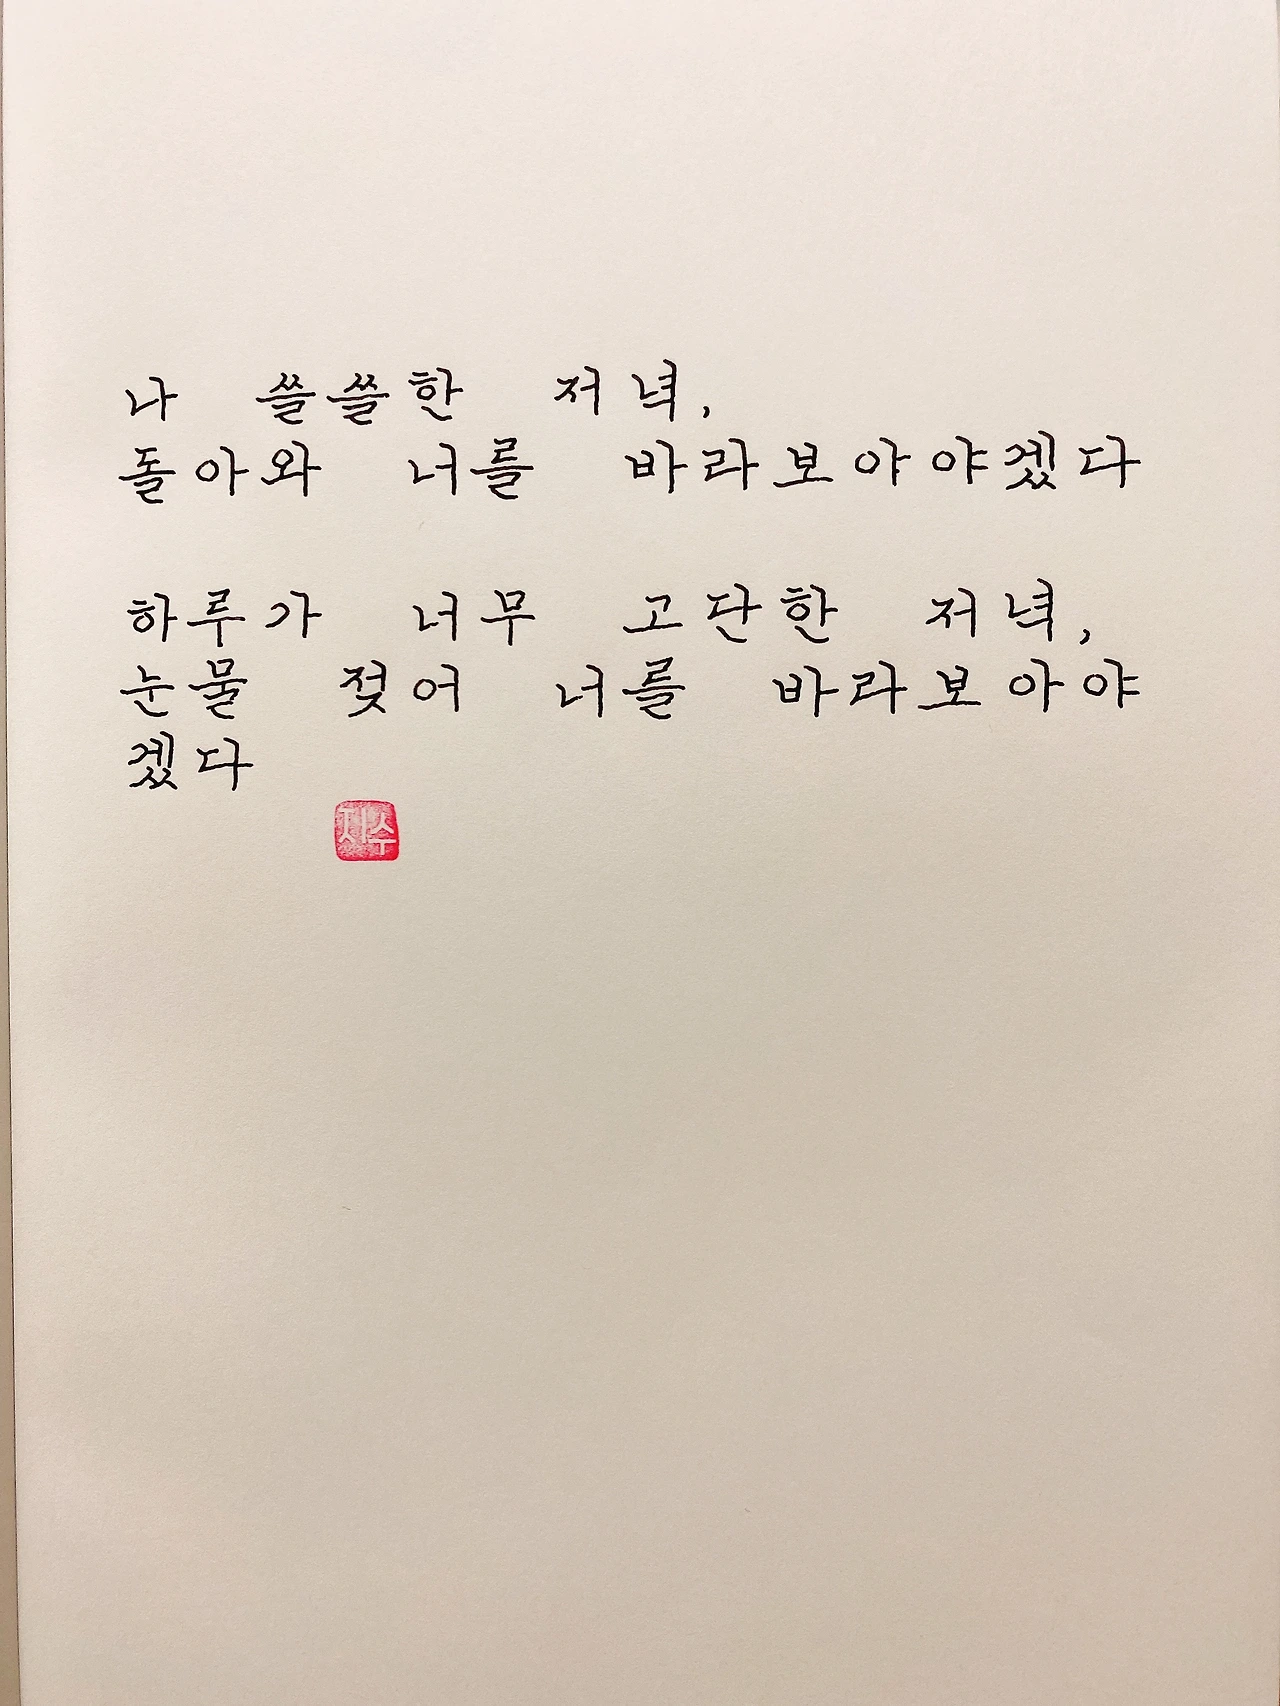 나 쓸쓸한 저녁,
돌아와 너를 바라보아야겠다
하루가 너무 고단한 저녁,
눈물 젖어 너를 바라보아야
겠다
지수